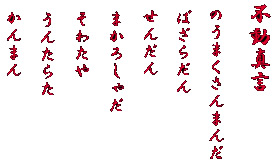 不動真言
のうまくさんまんだ
ばざらだん
せんだん
まかろしゃだ
そわたや
うんたらた
かんまん